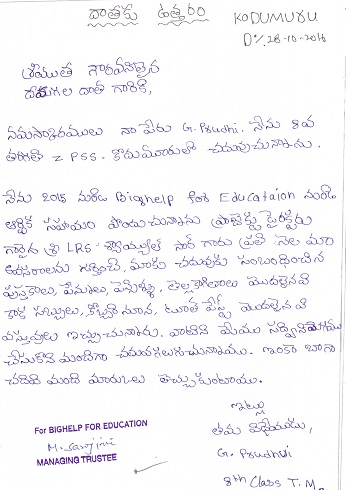 దాతకు ఉత్తరం KODUMURU
D% 28-10-2016
శ్రీయుత గౌరవనీలైన
దాత గారికి,
నమస్కారములు నా పేరు G. Prudhi. నేను 8వ
తరగతి Z PSS. కొడుమూరులో చదువుచున్నాను.
నేను 2015 నుండి Bighelp for Educataion నుండి
ఆర్థిక సహయం పొందుచున్నాను ప్రాజెక్టు డైరెక్టరు
శ్రీ LRS సార్ గారు ప్రతి నెల మా
అవసరాలను గుర్తించి, మాకు చదువుకు సంబంధించిన
పుస్తకాలు, పేనులు, పెన్సిళ్ళు, తెల్లకాగితాలు మొదలైనవి
సబ్బులు, కొబ్బరి నూన, టూత్ పేస్ట్ మొదలైన వి
వస్తువులు ఇచ్చుచున్నారు. వాటిని మేము సద్వినియోగము
చేసుకొని మంచిగా చదువగలుగుచున్నాము. ఇంకా బాగా
చదివి మంచి మార్కులు తెచ్చుకుంటాము.
ఇట్లు
తమ విధేయుడు,
G. Prudhvi
8th Class T.M.
For BIGHELP FOR EDUCATION
M. Sarojini
MANAGING TRUSTEE